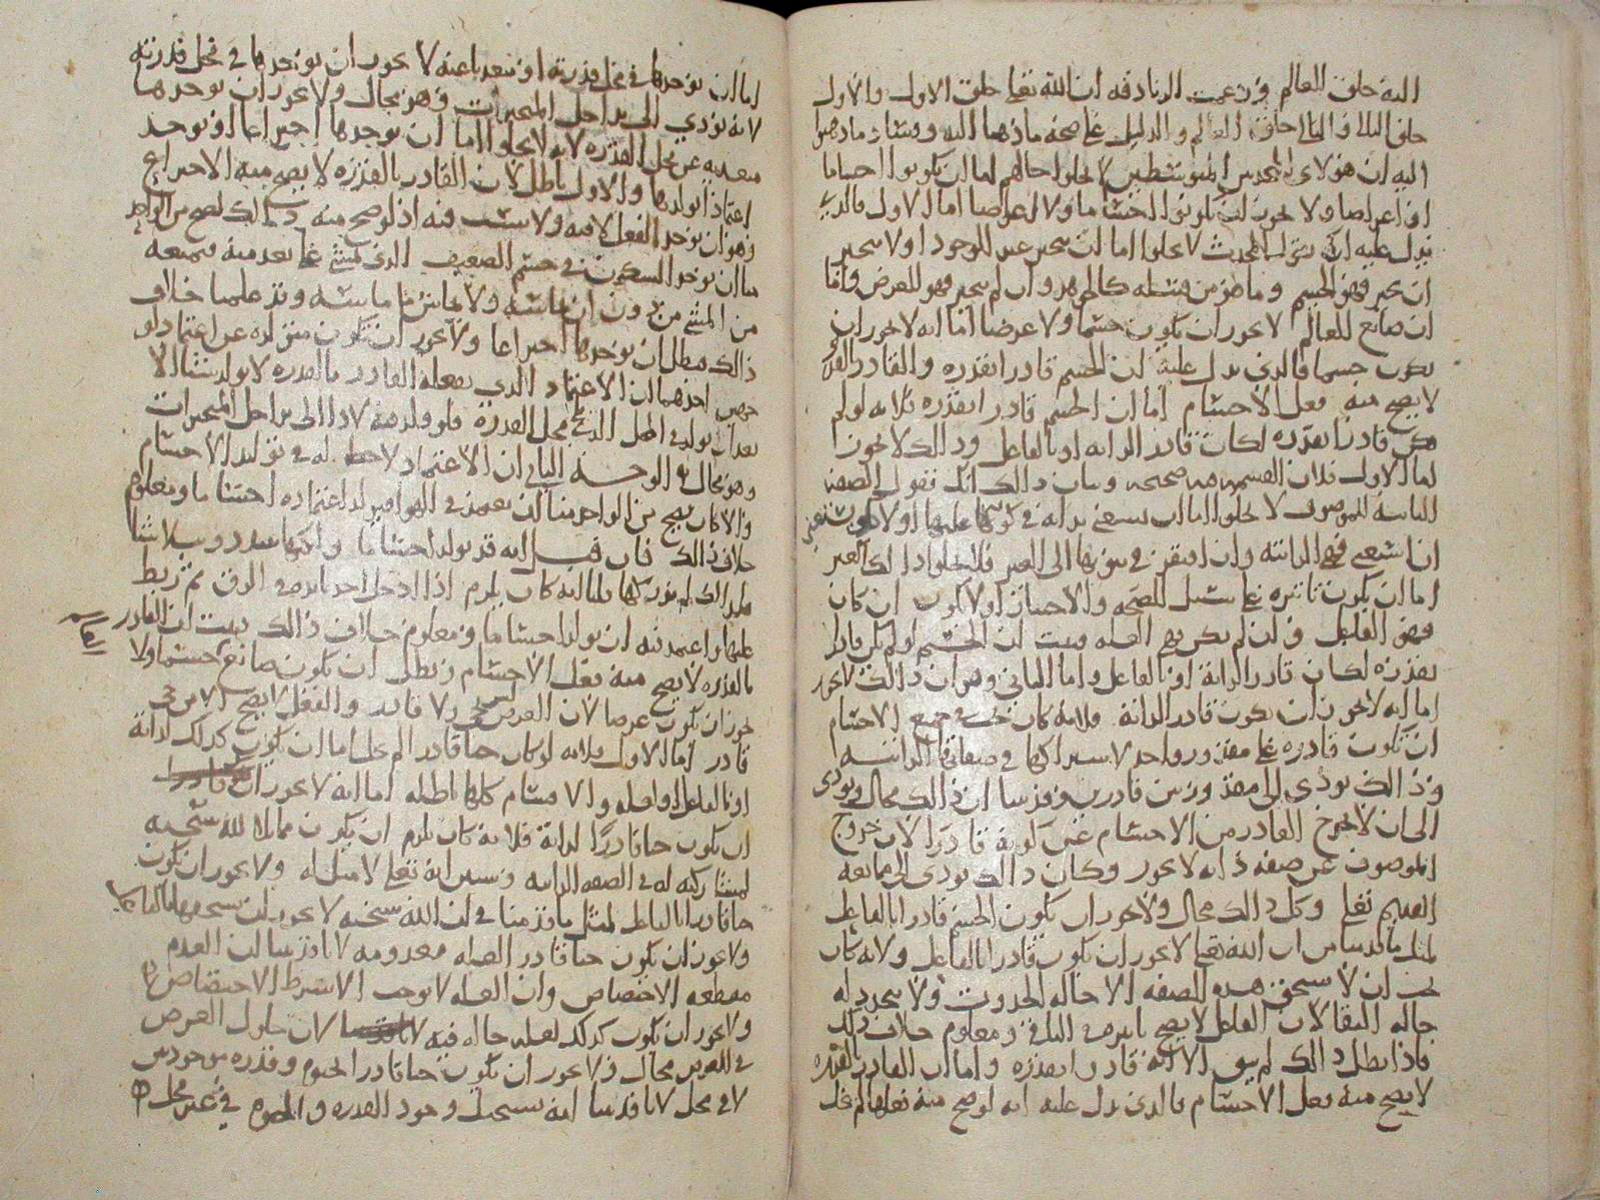 اليه خلق العالم وزعمت الزنادقه ان الله تعلى خلق الاول والاول
خلق الثاني والثاني خلق العالم والدليل على صحه ما ذهبنا اليه وفساد ما ذهبوا
اليه ان هؤلاء المحدثين المتوسطين لا يخلوا حالهم اما ان يكونوا اجساما
او اعراضا ولا يجوز ان يكونوا اجساما ولا اعراضا اما الاول فالذي
يدل عليه ان المحدث لا يخلوا اما ان يتحيز عند الوجود او لا يتحيز
ان تحيز فهو الجسم وما هو من قبيله كالجوهر وان لم يتحيز فهو العرض واما
ان صانع العالم لا يجوز ان يكون جسما ولا عرضا اما انه لا يجوز ان
يكون جسما فالذي يدل عليه ان الجسم قادر بقدره والقادر بالقدره
لا يصح منه فعل الاجسام اما ان الجسم قادر بقدره فلانه لو لم
يكن قادرا بقدره لكان قادرا لذاته او بالفاعل وذالك لا يجوز
اما الاول فلان القسمه صحيحه وبيان ذالك انك تقول الصفه
الثابته للموصوف لا يخلوا اما ان يستغني بذاته في كونها عليها او لا
ان استغنى فهي الذاتيه وان افتقر في ثبوتها الى الغير فلا يخلوا ذالك الغير
اما ان يكون تاثيره على سبيل الصحه والاختيار او لا يكون ان كان
فهو الفاعل وان لم يكن فهي العله فثبت ان الجسم لو لم يكن قادرا
بقدره لكان قادرا لذاته او بالفاعل واما الثاني وهو ان ذالك لا يجوز
اما انه لا يجوز ان يكون قادرا لذاته فلانه كان يجب في جميع الاجسام
ان تكون قادره على مقدور واحد لاشتراكها في صفاتها الذاتيه
وذالك يؤدي الى مقدور بين قادرين وقد بينا ان ذالك محال ويؤدي
الى ان لا يخرج القادر من الاجسام عن كونه قادرا لان خروج
الموصوف عن صفه ذاته لا يجوز وكان ذالك يؤدي الى ممانعه
القديم تعلى وكل ذالك محال ولا يجوز ان يكون الجسم قادرا بالفاعل
لمثل ما قدمنا من ان الله تعلى لا يجوز ان يكون قادرا بالفاعل ولانه كان
يجب ان لا يستحق هذه الصفه الا حاله الحدوث ولا يتجدد له
حاله البقا لان الفاعل لا يصح تاثيره في الباقي ومعلوم خلاف ذالك
فاذا بطل ذالك لم يبق الا انه قادر بقدره واما ان القادر بالقدره
لا يصح منه فعل الاجسام فالذي يدل عليه انه لو صح منه فعلها لم يخل
اما ان يوجدها في محل قدرته او متعديا عنه لا يجوز ان يوجدها في محل قدرته
لانه يؤدي الى تداخل المتحيزات وهو محال ولا يجوز ان يوجدها
متعديه عن محل القدره لانه لا يخلوا اما ان يوجدها اختراعا او يوجد
اعتمادا يولدها والاول باطل لان القادر بالقدره لا يصح منه الاختراع
وهو ان يوجد الفعل لا فيه ولا بسبب فيه اذ لو صح منه ذالك لصح من الواحد
منا ان يوجد السكون في جسم الضعيف الذي يمشي على بعد منه فيمنعه
من المشي من دون ان يماسه ولا يماس ما ماسه وقد علمنا خلاف
ذالك فبطل ان يوجدها اختراعا ولا يجوز ان تكون متولده عن اعتماد لو
جهين احدهما ان الاعتماد الذي يفعله القادر بالقدره لا يولد شيئا الا
بعد ان يولد في المحل الذي هو محل القدره فلو ولد منه لادا الى تداخل المتحيزات
وهو محال والوجه الثاني ان الاعتماد لاحظ له في توليد الاجسام
والا كان يصح من الواحد منا ان يعتمد في الهوا فيولد اعتماده اجساما ومعلوم
خلاف ذالك فان قيل انه قد يولد اجساما ولكنها تتبدد وتتلاشا
فلذالك لم ندركها قلنا انه كان يلزم اذا ادخل احدنا يده في الزق ثم ربط
عليها واعتمد فيه ان يولد اجساما ومعلوم خلاف ذالك فثبت ان القادر
بالقدره لا يصح منه فعل الاجسام وبطل ان يكون صانع جسما ولا
يجوز ان يكون عرضا لان العرض ليس بحي ولا قادر والفعل لا يصح الا من حي
قادر اما الاول فلانه لو كان حيا قادرا لم يخل اما ان يكون كذلك لذاته
او بالفاعل او لعله والاقسام كلها باطله اما انه لا يجوز
ان يكون حيا قادرا لذاته فلانه كان يلزم ان يكون مماثلا لله سبحنه
لمشاركته له في الصفه الذاتيه وسنبين انه تعلى لا مثل له ولا يجوز ان يكون
حيا قادرا بالفاعل لمثل ما قدمنا في ان الله سبحنه لا يجوز ان يستحقها بالفاعل
ولا يجوز ان يكون حيا قادرا لعله معدومه لما قدمنا ان العدم
مقطعه الاختصاص وان العله لا توجب الا بشرط الاختصاص
ولا يجوز ان يكون كذلك لعله حاله فيه لان حلول العرض
في العرض محال ولا يجوز ان يكون حيا قادرا بحيوه وقدره موجودتين
لا في محل لما قدمنا انه يستحيل وجود القدره والحيوه في غير محل